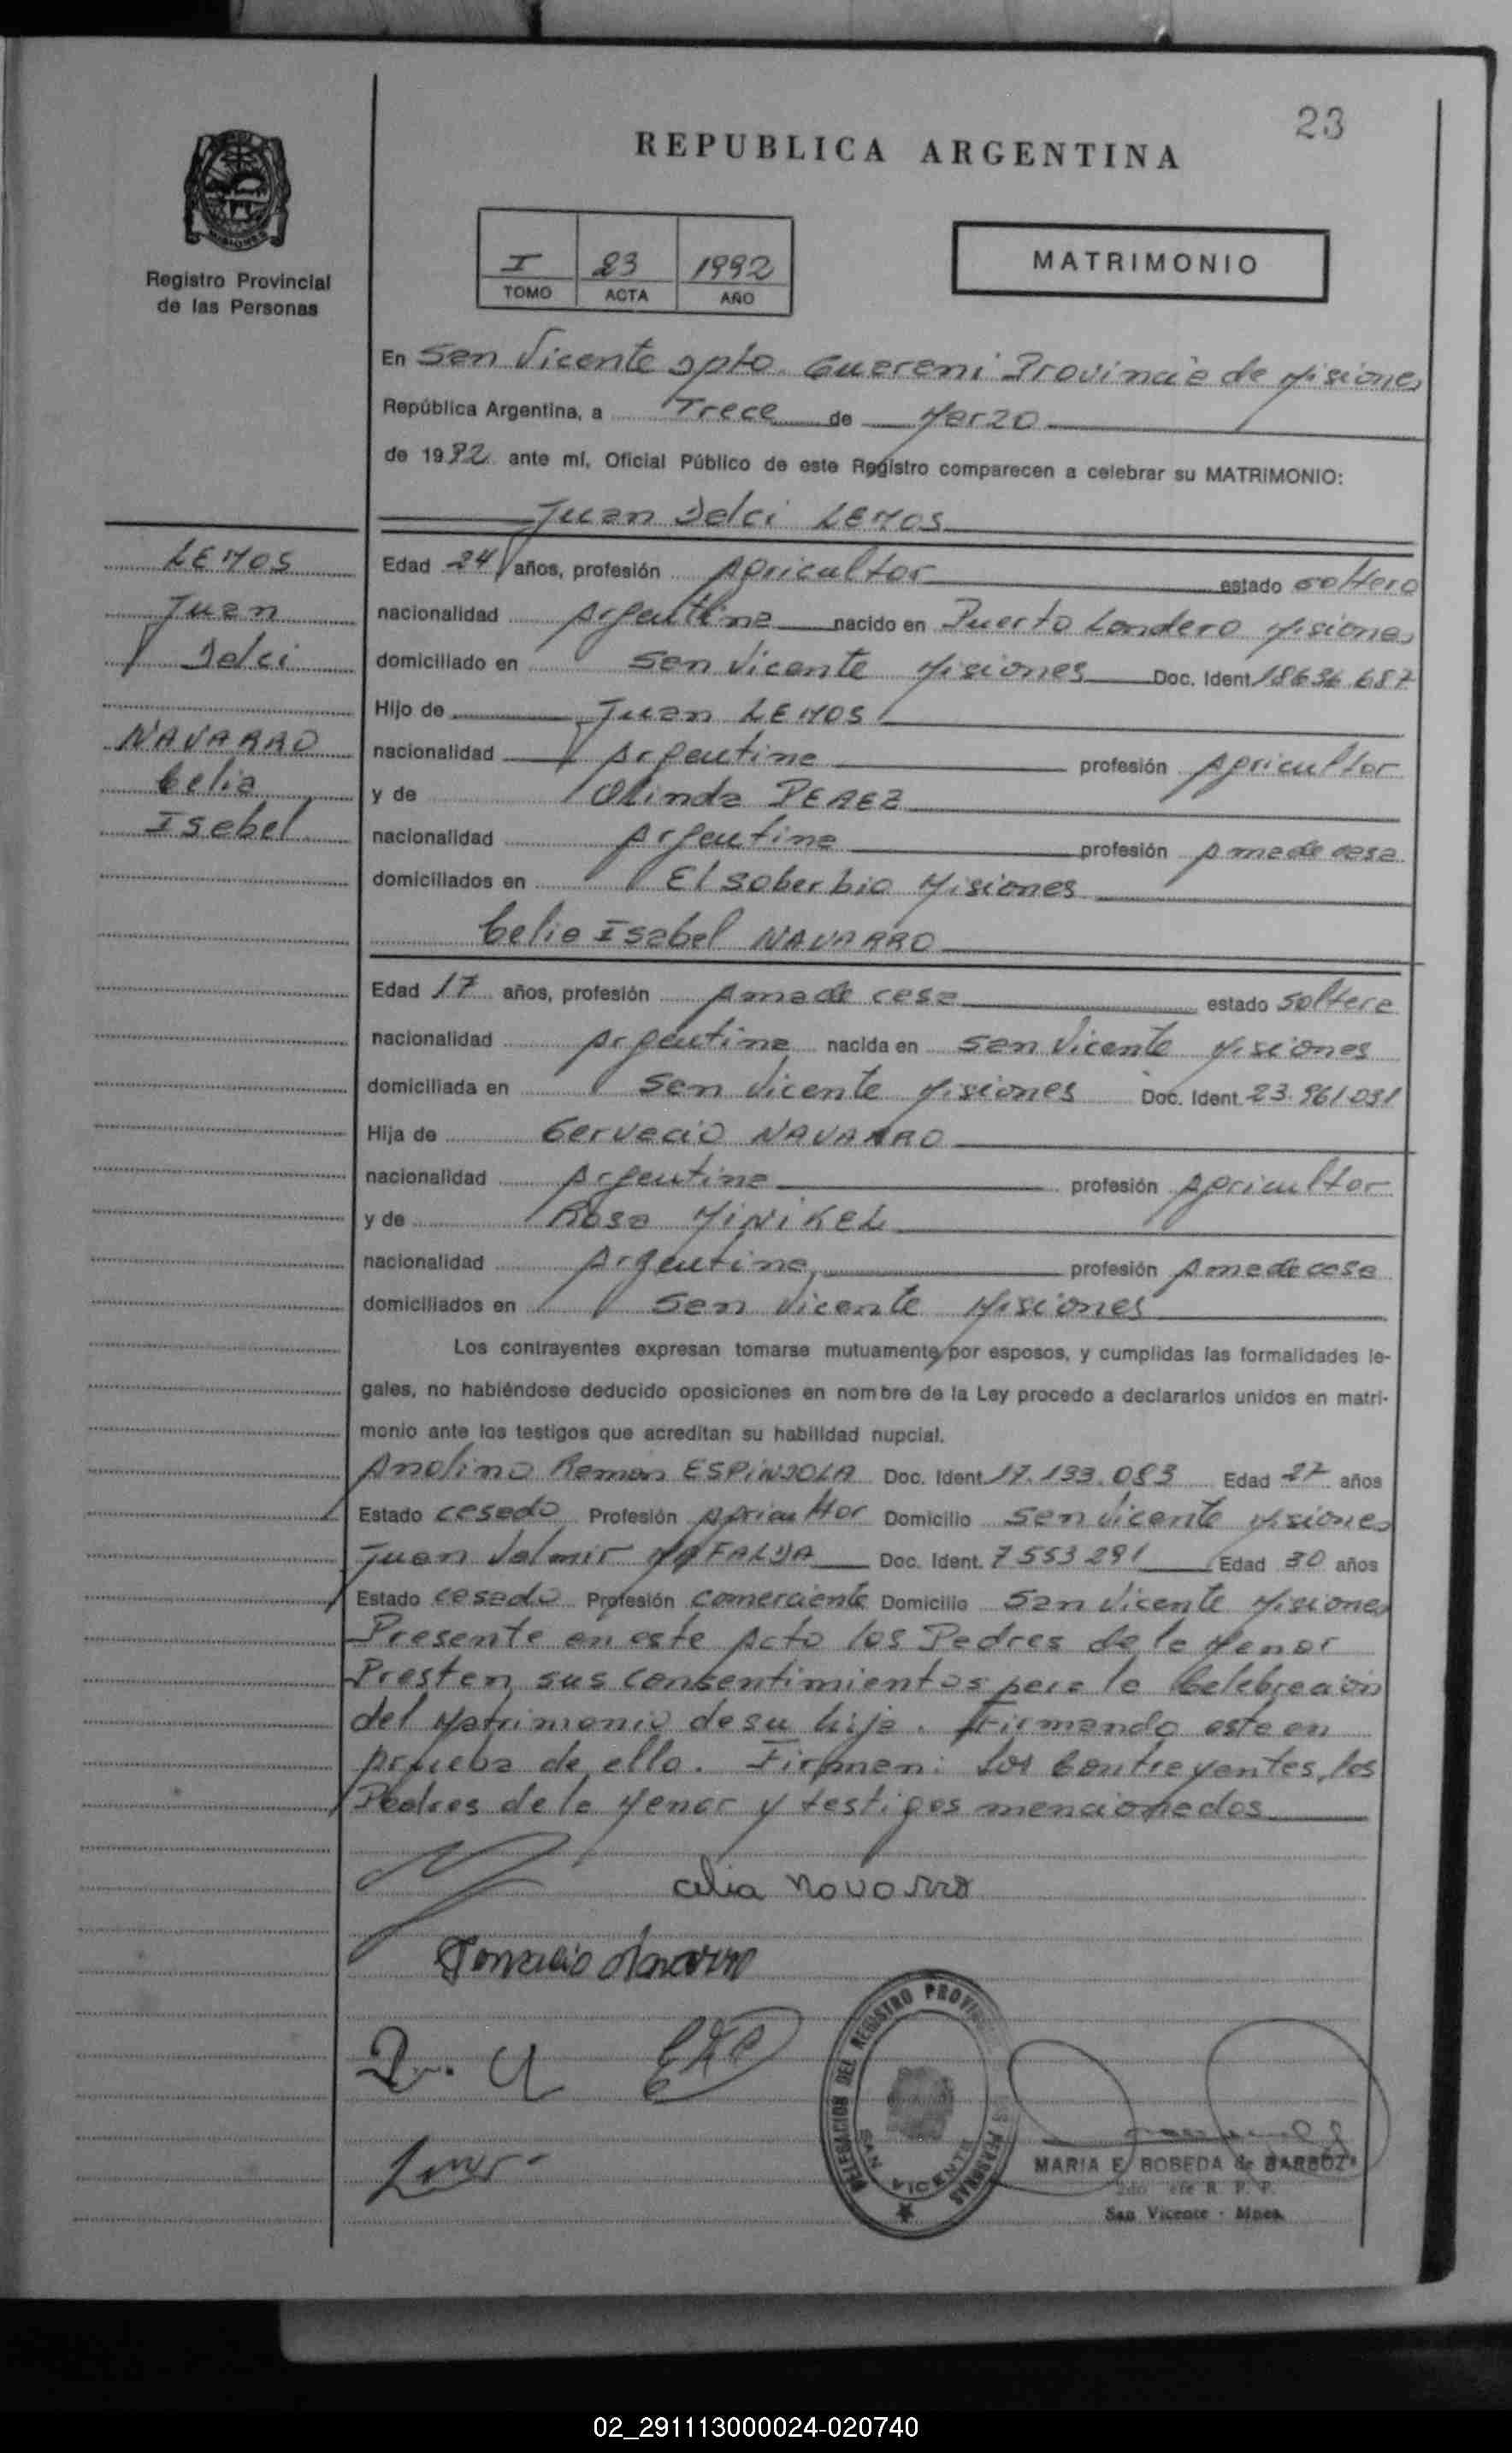 23
REPUBLICA ARGENTINA
MISIONES
Registro Provincial
de las Personas
I 23 1992
TOMO ACTA AÑO
MATRIMONIO
En San Vicente Dpto. Guarani Provincia de Misiones
República Argentina, a Trece de Marzo
de 1992 ante mí, Oficial Público de este Registro comparecen a celebrar su MATRIMONIO:
Juan Delci LEMOS
LEMOS
Juan
Delci
NAVARRO
Celia
Isabel
Edad 24 años, profesión Agricultor estado soltero
nacionalidad Argentina nacido en Puerto Londero Misiones
domiciliado en San Vicente Misiones Doc. Ident. 18636687
Hijo de Juan LEMOS
nacionalidad Argentina profesión Agricultor
y de Olinda PEREZ
nacionalidad Argentina profesión Ama de casa
domiciliados en El Soberbio Misiones
Celia Isabel NAVARRO
Edad 17 años, profesión Ama de casa estado Soltera
nacionalidad Argentina nacida en San Vicente Misiones
domiciliada en San Vicente Misiones Doc. Ident. 23.961.031
Hija de Gervacio NAVARRO
nacionalidad Argentina profesión Agricultor
y de Rosa MINIKEL
nacionalidad Argentina profesión Ama de casa
domiciliados en San Vicente Misiones
Los contrayentes expresan tomarse mutuamente por esposos, y cumplidas las formalidades le-
gales, no habiéndose deducido oposiciones en nombre de la Ley procedo a declararlos unidos en matri-
monio ante los testigos que acreditan su habilidad nupcial.
Anolino Ramon ESPINDOLA Doc. Ident. 17.133.083 Edad 27 años
Estado casado Profesión Agricultor Domicilio San Vicente Misiones
Juan Valmir Doc. Ident. 7553291 Edad 30 años
Estado casado Profesión comerciante Domicilio San Vicente Misiones
Presente en este Acto los Padres de la Menor
Prestan sus consentimientos para la Celebracion
del Matrimonio de su hija. Firmando este en
prueba de ello. Firman: los Contrayentes, los
Padres de la Menor y testigos mencionados
celia Navarro
Navarro
DELEGACION DEL REGISTRO PROVINCIAL PERSONAS
SAN VICENTE
MARIA E. BOBEDA de BARBOZA
R. P. P.
San Vicente - Mnes.
02_291113000024-020740